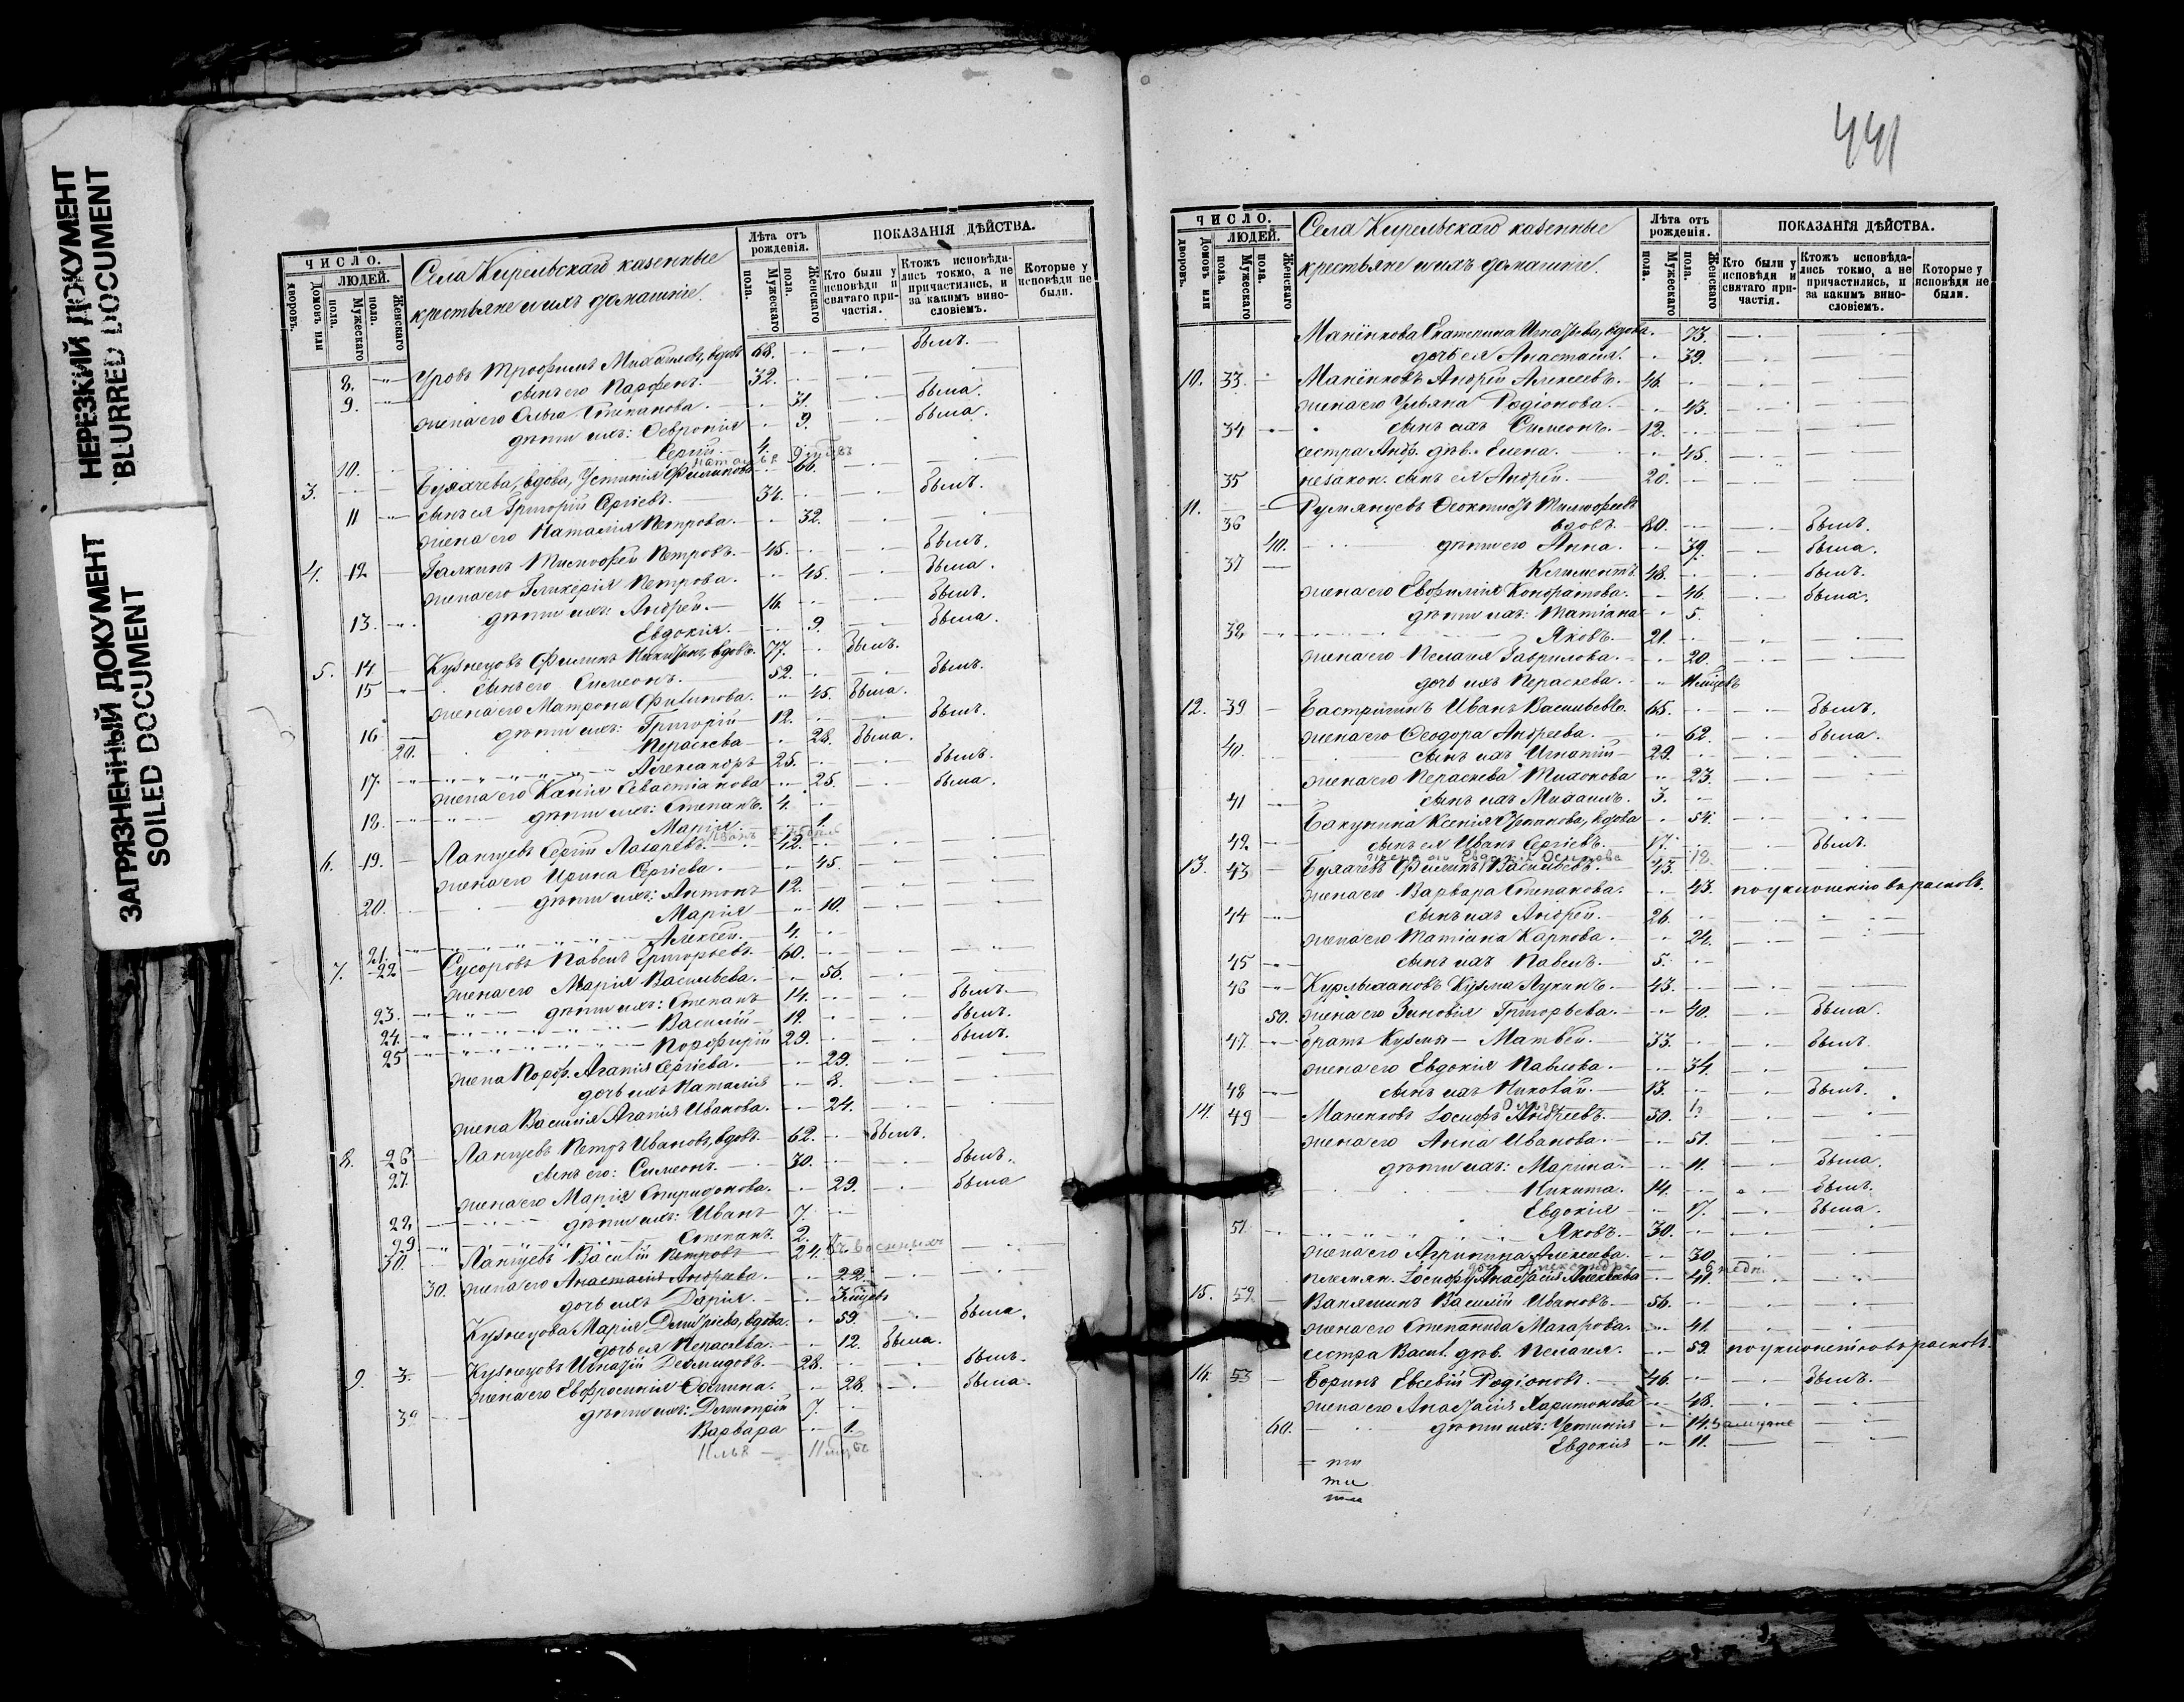 НЕРЕЗКИЙ ДОКУМЕНТ
BLURRED DOCUMENT
ЗАГРЯЗНЕННЫЙ ДОКУМЕНТ
SOILED DOCUMENT
ЧИСЛО.
ЛЮДЕЙ.
Домовъ или дворовъ.
Мужескаго пола.
Женскаго пола.
Села Кирельскаго казенные
крестьяне и ихъ домашніе.
Лѣта отъ рожденія.
Мужескаго пола.
Женскаго пола.
ПОКАЗАНІЯ ДѢЙСТВА.
Кто были у исповѣди и святаго причастія.
Ктожъ исповѣдались токмо, а не причастились, и за какимъ винословіемъ.
Которые у исповѣди не были.
8. Уровъ Трофимъ Михайловъ, вдовъ 68. былъ.
9. сынъ его Парфенъ. 32.
жена его Ольга Степанова. 31. была.
дѣти ихъ: Февронія 9. была.
10. Сергій. 4.
3. вдова, Устинія Филипова 66.
11 сынъ ея Григорій Сергіевъ. 34. былъ.
жена его Наталія Петрова. 32.
4. 12 Галкинъ Тимофей Петровъ. 45. былъ.
жена его Гликерія Петрова. 45. была.
13. дѣти ихъ: Андрей. 16. былъ.
Евдокія. 9. была.
5. 14 Кузнецовъ Филипъ вдовъ. 77. былъ.
15 сынъ его Симеонъ. 52. былъ.
жена его Матрона Филипова. 45. была.
16 дѣти ихъ: Григорій 12. былъ.
20. Параскева 28. была.
17 Александръ 25. былъ.
жена его Ксенія Севастіанова 25. была.
18. дѣти ихъ: Степанъ. 4.
Марія. 1.
6. 19. Ланцевъ Сергій Лазаревъ. 42.
жена его Ирина Сергіева. 45.
20. дѣти ихъ: Антонъ 12.
Марія 10.
21. Алексѣй. 4.
7. 22 Сусоровъ Павелъ Григорьевъ. 60.
жена его Марія Васильева. 56.
23. дѣти ихъ: Степанъ 14. былъ.
24. Василій 19. былъ.
25 Порфирій 29. былъ.
жена Порф. Агапія Сергіева. 29.
дочь ихъ Наталія 8.
жена Василія Агапія Иванова. 24.
8. 26 Ланцевъ Петръ Ивановъ, вдовъ. 62. былъ.
27. сынъ его: Симеонъ. 30. былъ.
жена его Марія Спиридонова. 29. была
28 дѣти ихъ: Иванъ 7.
29 Степанъ. 2.
30. Ланцевъ Василій Петровъ 24.
30. жена его Анастасія Андреева. 22.
дочь ихъ Дарія.
Кузнецова Марія вдова. 59. была.
дочь ея Параскева. 12. была.
9. Кузнецовъ Игнатій 28. былъ.
жена его Евфросинія Фомина. 28. была.
дѣти ихъ: Димитрій 7.
Варвара 1.
Илья
441
ЧИСЛО.
ЛЮДЕЙ.
Домовъ или дворовъ.
Мужескаго пола.
Женскаго пола.
Села Кирельскаго казенные
крестьяне и ихъ домашніе.
Лѣта отъ рожденія.
Мужескаго пола.
Женскаго пола.
ПОКАЗАНІЯ ДѢЙСТВА.
Кто были у исповѣди и святаго причастія.
Ктожъ исповѣдались токмо, а не причастились, и за какимъ винословіемъ.
Которые у исповѣди не были.
Маненкова Екатерина Игнатьева, вдова. 73.
дочь ея Анастасія. 39.
10. 33. Маненковъ Андрей Алексеевъ. 46.
жена его Ульяна Родіонова. 43.
34 сынъ ихъ Симеонъ. 12.
сестра Андр. дѣв. Елена. 45.
35 незакон. сынъ ея Андрей. 20.
11. Румянцевъ Феоктистъ Тимофеевъ
36 вдовъ. 80. былъ.
40. дѣти его Анна. 39. была.
37 Климентъ. 48. былъ.
жена его Евфимія Кондратова. 46. была.
дѣти ихъ: Татіана 5.
38 Яковъ. 21.
жена его Пелагея Гаврилова. 20.
дочь ихъ Параскева.
12. 39 Бастригинъ Иванъ Васильевъ. 65. былъ.
жена его Феодора Андреева. 62. была.
40. сынъ ихъ Игнатій 29.
жена его Параскева Тихонова 23.
41 сынъ ихъ Михаилъ. 3.
Бакунина Ксенія вдова 54.
42 сынъ ея Иванъ Сергіевъ. 17. былъ.
жена его Евдокія Осипова 18.
13. 43 Филипъ Васильевъ. 43.
жена его Варвара Степанова. 43. по уклоненію въ расколъ.
44 сынъ ихъ Андрей. 26.
жена его Татіана Карпова. 24.
45 сынъ ихъ Павелъ. 5.
46 Курлыхановъ Кузма Лукинъ. 43.
50. жена его Зиновія Григорьева. 40. была.
47 братъ Кузмы — Матвѣй. 33. былъ.
жена его Евдокія Павлова. 34.
48 сынъ ихъ Николай. 13. былъ.
14. 49 Маненковъ Іосифъ Андреевъ. 50.
жена его Анна Иванова. 51.
дѣти ихъ: Марина. 11. была.
Никита. 14. былъ.
Евдокія 17. была.
51 Яковъ. 30.
жена его Агрипина Алексеева. 30.
племян. Іосифа Анастасія Алексеева 41.
15. 52 Ваняшинъ Василій Ивановъ. 56.
жена его Степанида Макарова. 41.
сестра Васил. дѣв. Пелагея. 59. по уклоненію въ расколъ.
16. 53 Боринъ Евсевій Родіоновъ. 46. былъ.
жена его Анастасія Харитонова 48.
60. дѣти ихъ: Устинія 14.
Евдокія 11.